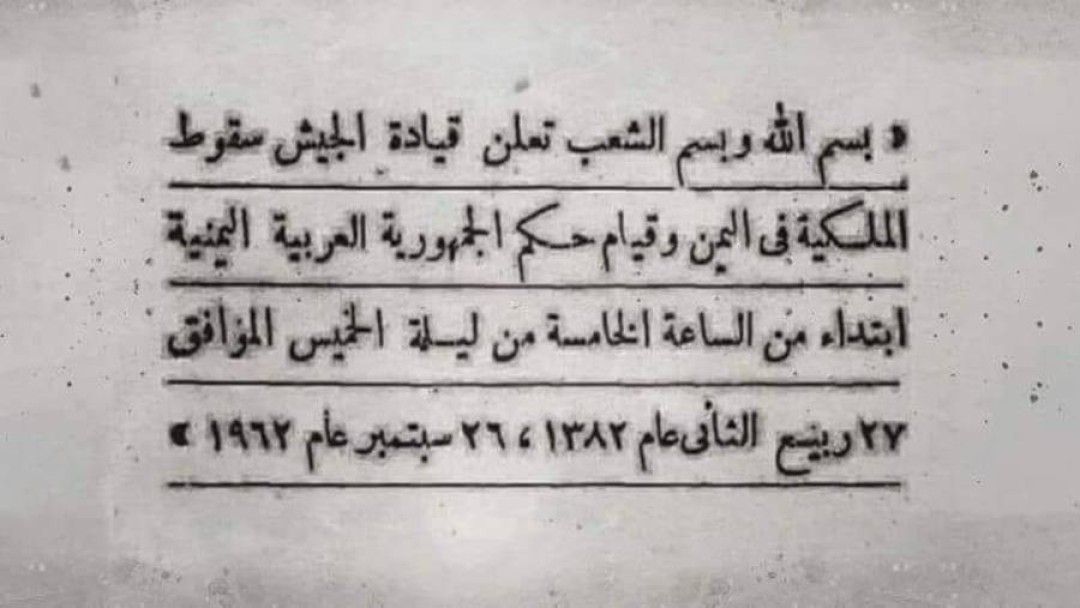 « بسم الله وبسم الشعب تعلن قيادة الجيش سقوط
الملكية فى اليمن وقيام حكم الجمهورية العربية اليمنية
ابتداء من الساعة الخامسة من ليلة الخميس الموافق
٢٧ ربيع الثانى عام ١٣٨٢ ، ٢٦ سبتمبر عام ١٩٦٢ »